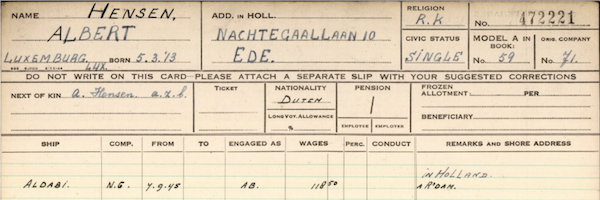 NAME HENSEN, ALBERT
LUXEMBURG, LUX. BORN 5.3.73
ADD. IN HOLL. NACHTEGAALLAAN 10
EDE.
RELIGION R.K
CIVIC STATUS SINGLE
No. 472221
MODEL A IN BOOK: No. 59
ORIG. COMPANY No. 71.
DO NOT WRITE ON THIS CARD—PLEASE ATTACH A SEPARATE SLIP WITH YOUR SUGGESTED CORRECTIONS
NEXT OF KIN A. Hensen a.z.b.
TICKET
NATIONALITY DUTCH
LONG VOY. ALLOWANCE %
PENSION
EMPLOYER EMPLOYEE
FROZEN ALLOTMENT: PER
BENEFICIARY
SHIP COMP. FROM TO ENGAGED AS WAGES PERC. CONDUCT REMARKS AND SHORE ADDRESS
ALDABI. N.G. 7.9.45 AB. 118.50 IN HOLLAND.
A R'DAM.